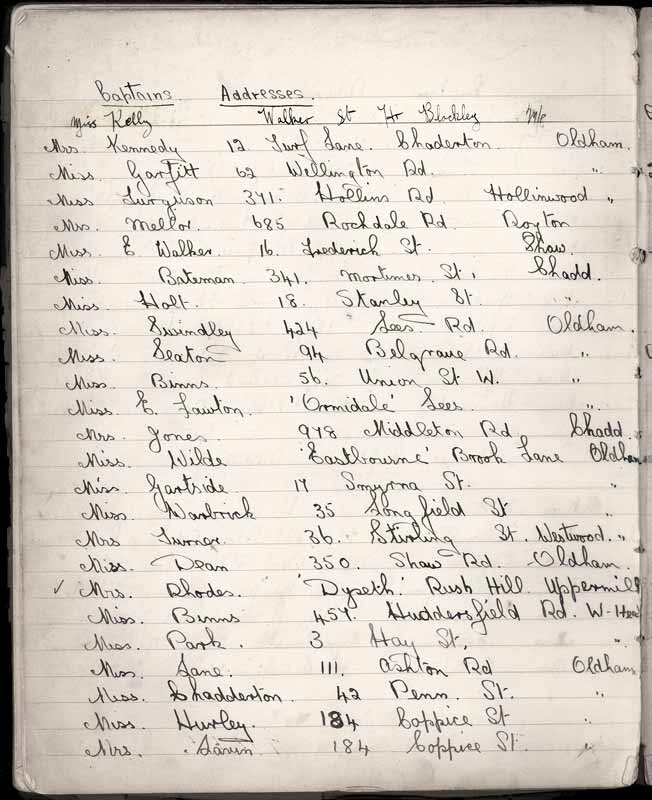 Captains Addresses.
Miss Kelly Walker St Hr Blackley M/c
Mrs. Kennedy 12 Turf Lane. Chaderton Oldham.
Miss. Garfitt 62 Wellington Rd. "
Miss Furguson 371. Hollins Rd Hollinwood "
Mrs. Mellor. 685 Rochdale Rd Royton
Miss. E. Walker. 16. Frederick St. Shaw.
Miss. Bateman. 341. Mortimer St. Chadd.
Miss Holt. 18. Stanley St. "
Miss. Swindley 424 Lees Rd. Oldham.
Miss. Seaton 94 Belgrave Rd. "
Miss. Binns. 56. Union St W. "
Miss. E. Lawton. 'Ormidale' Lees. "
Mrs. Jones. 978 Middleton Rd Chadd.
Miss. Wilde 'Eastbourne' Brook Lane Oldham
Miss. Gartside 17 Smyrna St. "
Miss. Warbrick 35 Longfield St "
Mrs Turner. 36. Stirling St. Westwood. "
Miss. Dean 350. Shaw Rd. Oldham.
✓ Mrs. Rhodes. Rush Hill. Uppermill
Miss. Binns 457. Huddersfield Rd. W-Head
Miss. Park. 3 Hay St. "
Miss. Lane. 111. Ashton Rd Oldham
Miss. Chadderton. 42 Penn. St. "
Miss Hurley. 184 Coppice St "
Mrs. 184 Coppice St. "